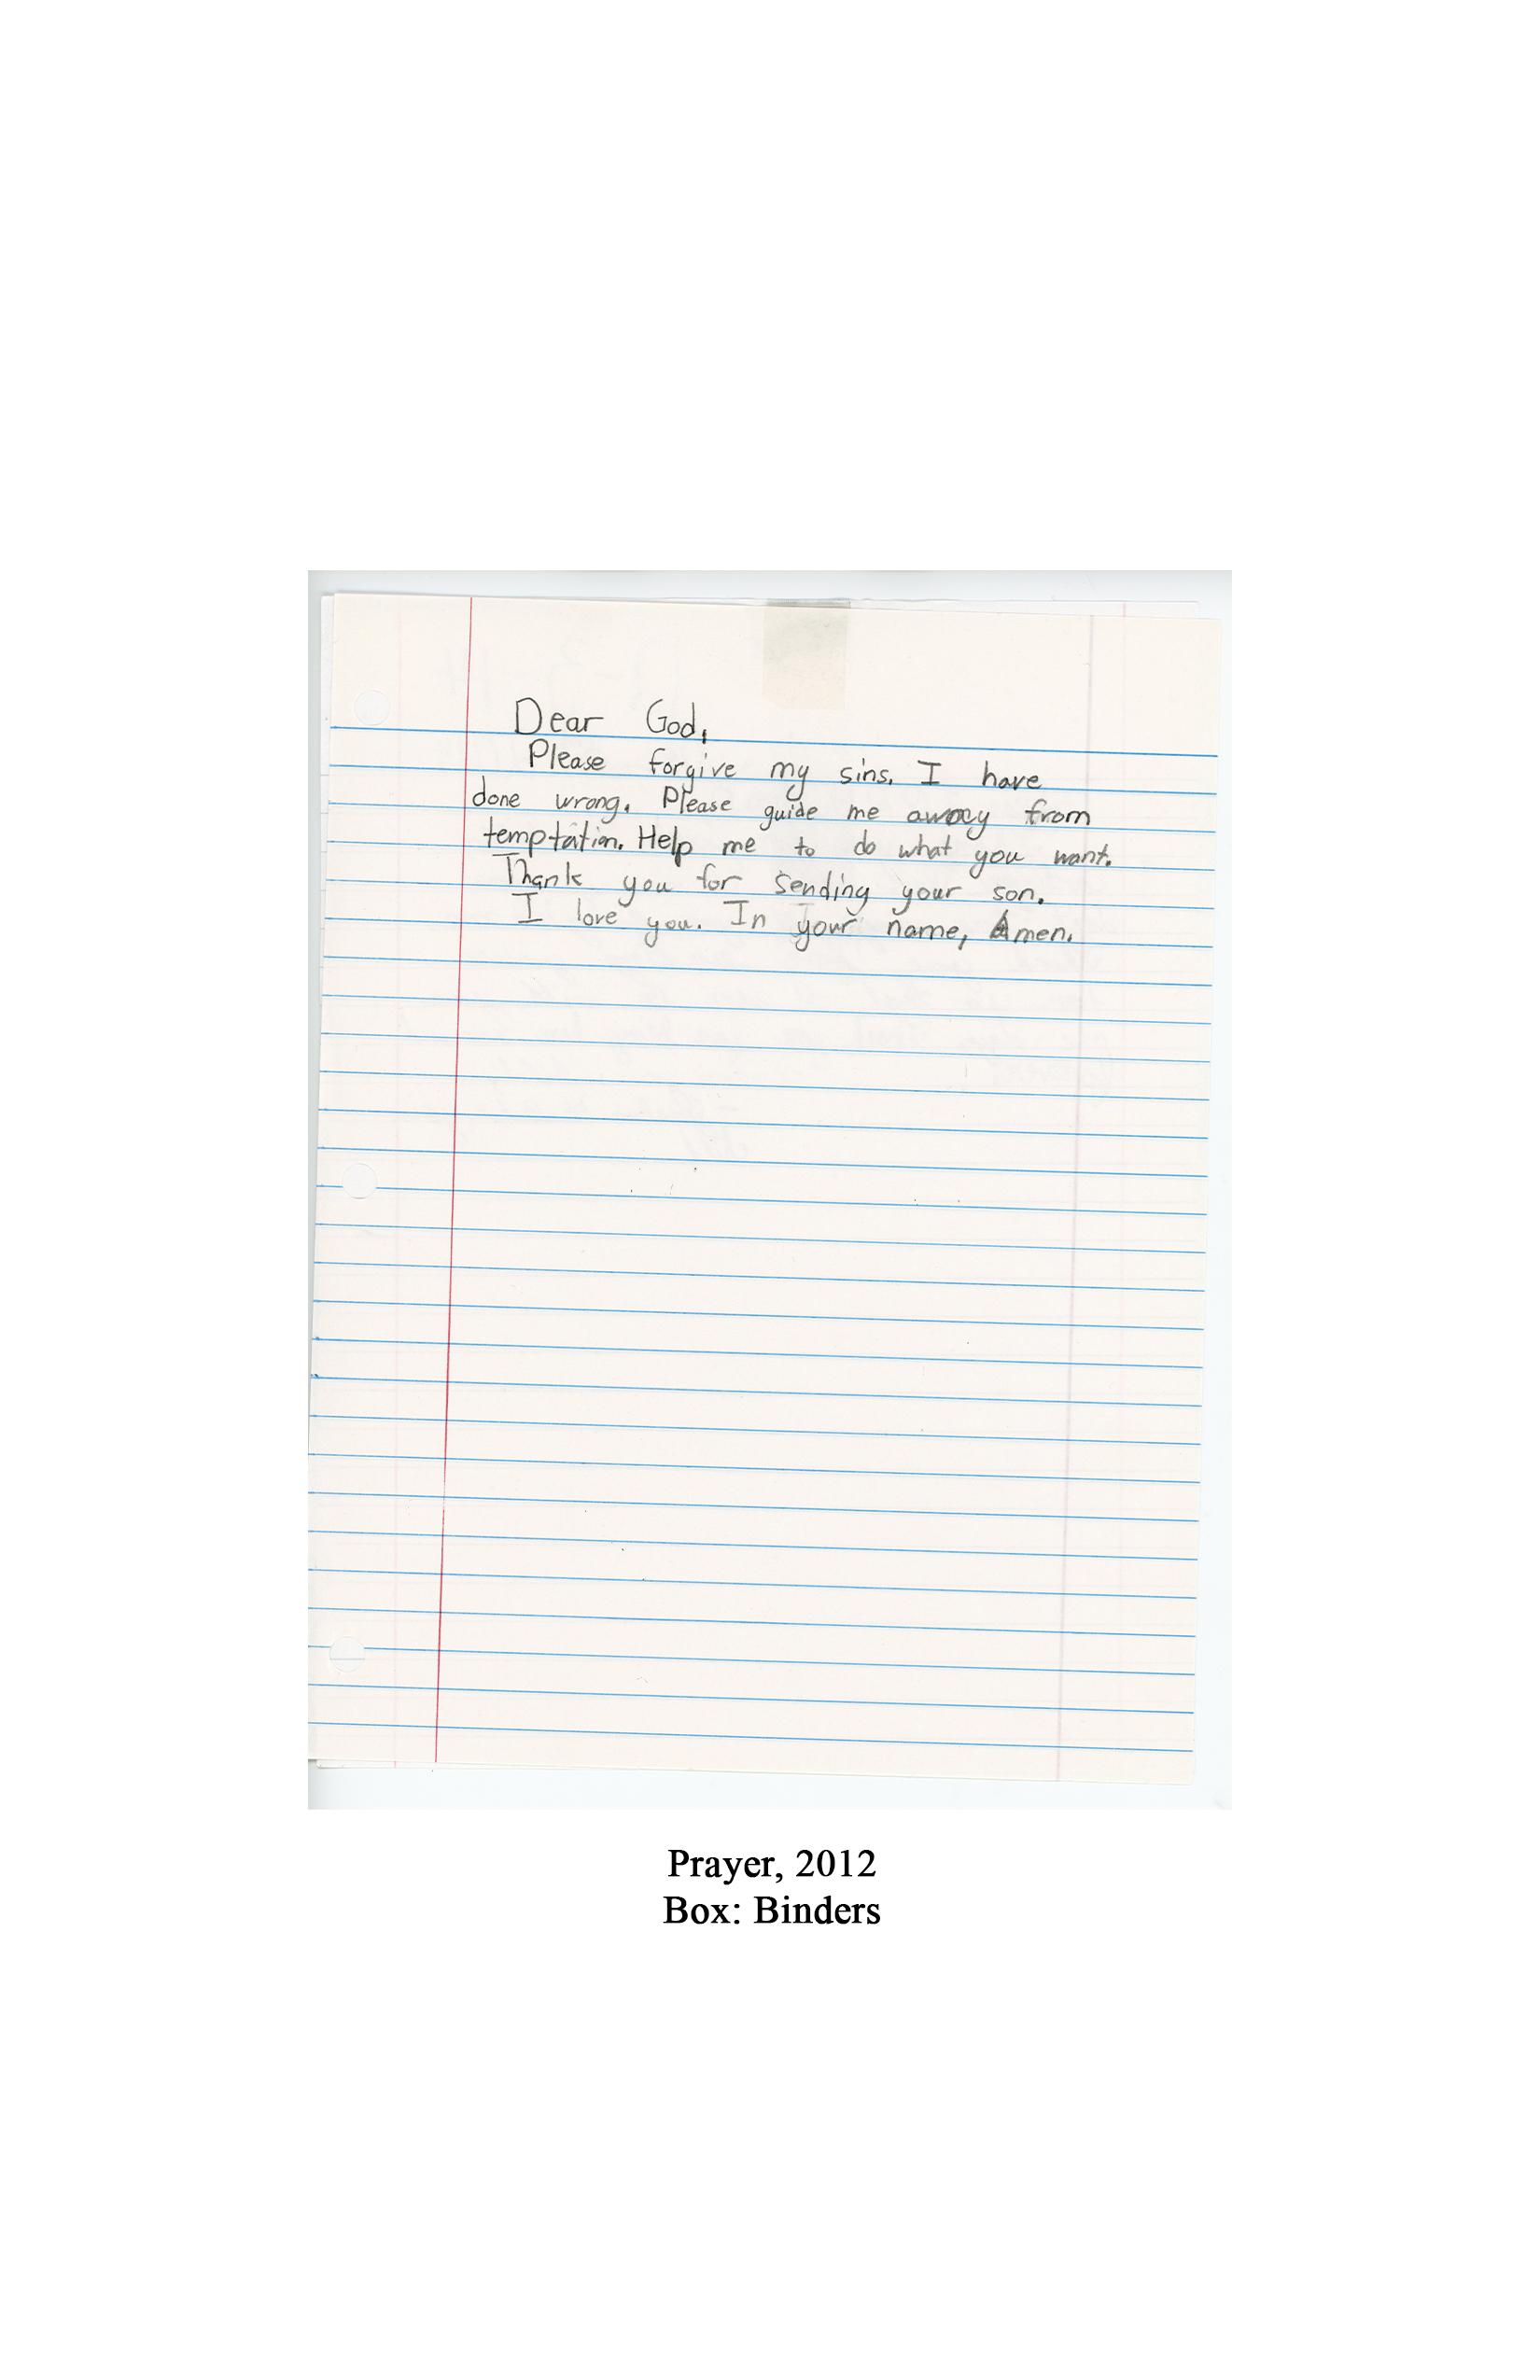 Dear God,
Please forgive my sins. I have
done wrong. Please guide me away from
temptation. Help me to do what you want.
Thank you for sending your son.
I love you. In your name, Amen.
Prayer, 2012
Box: Binders